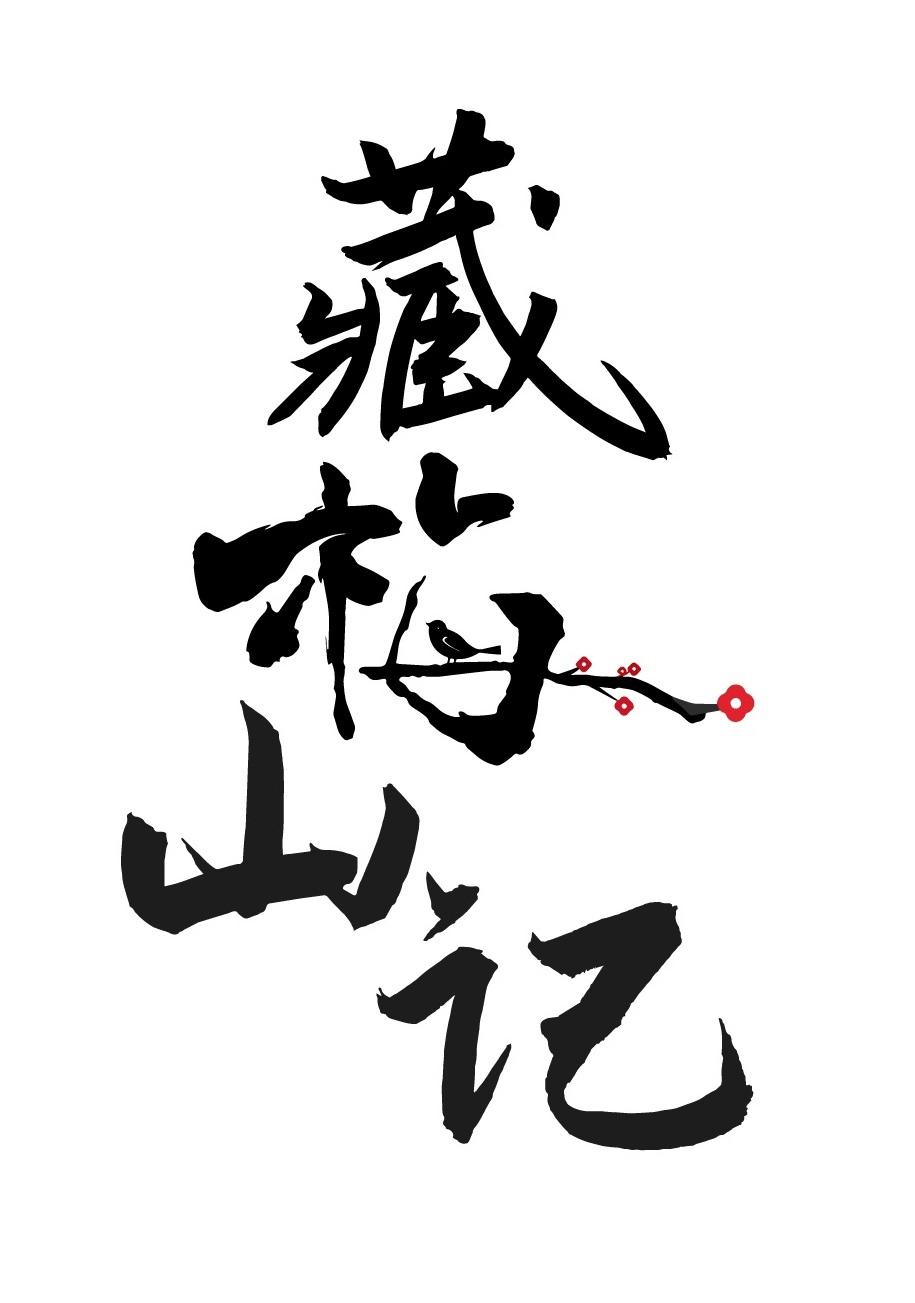 藏梅山记